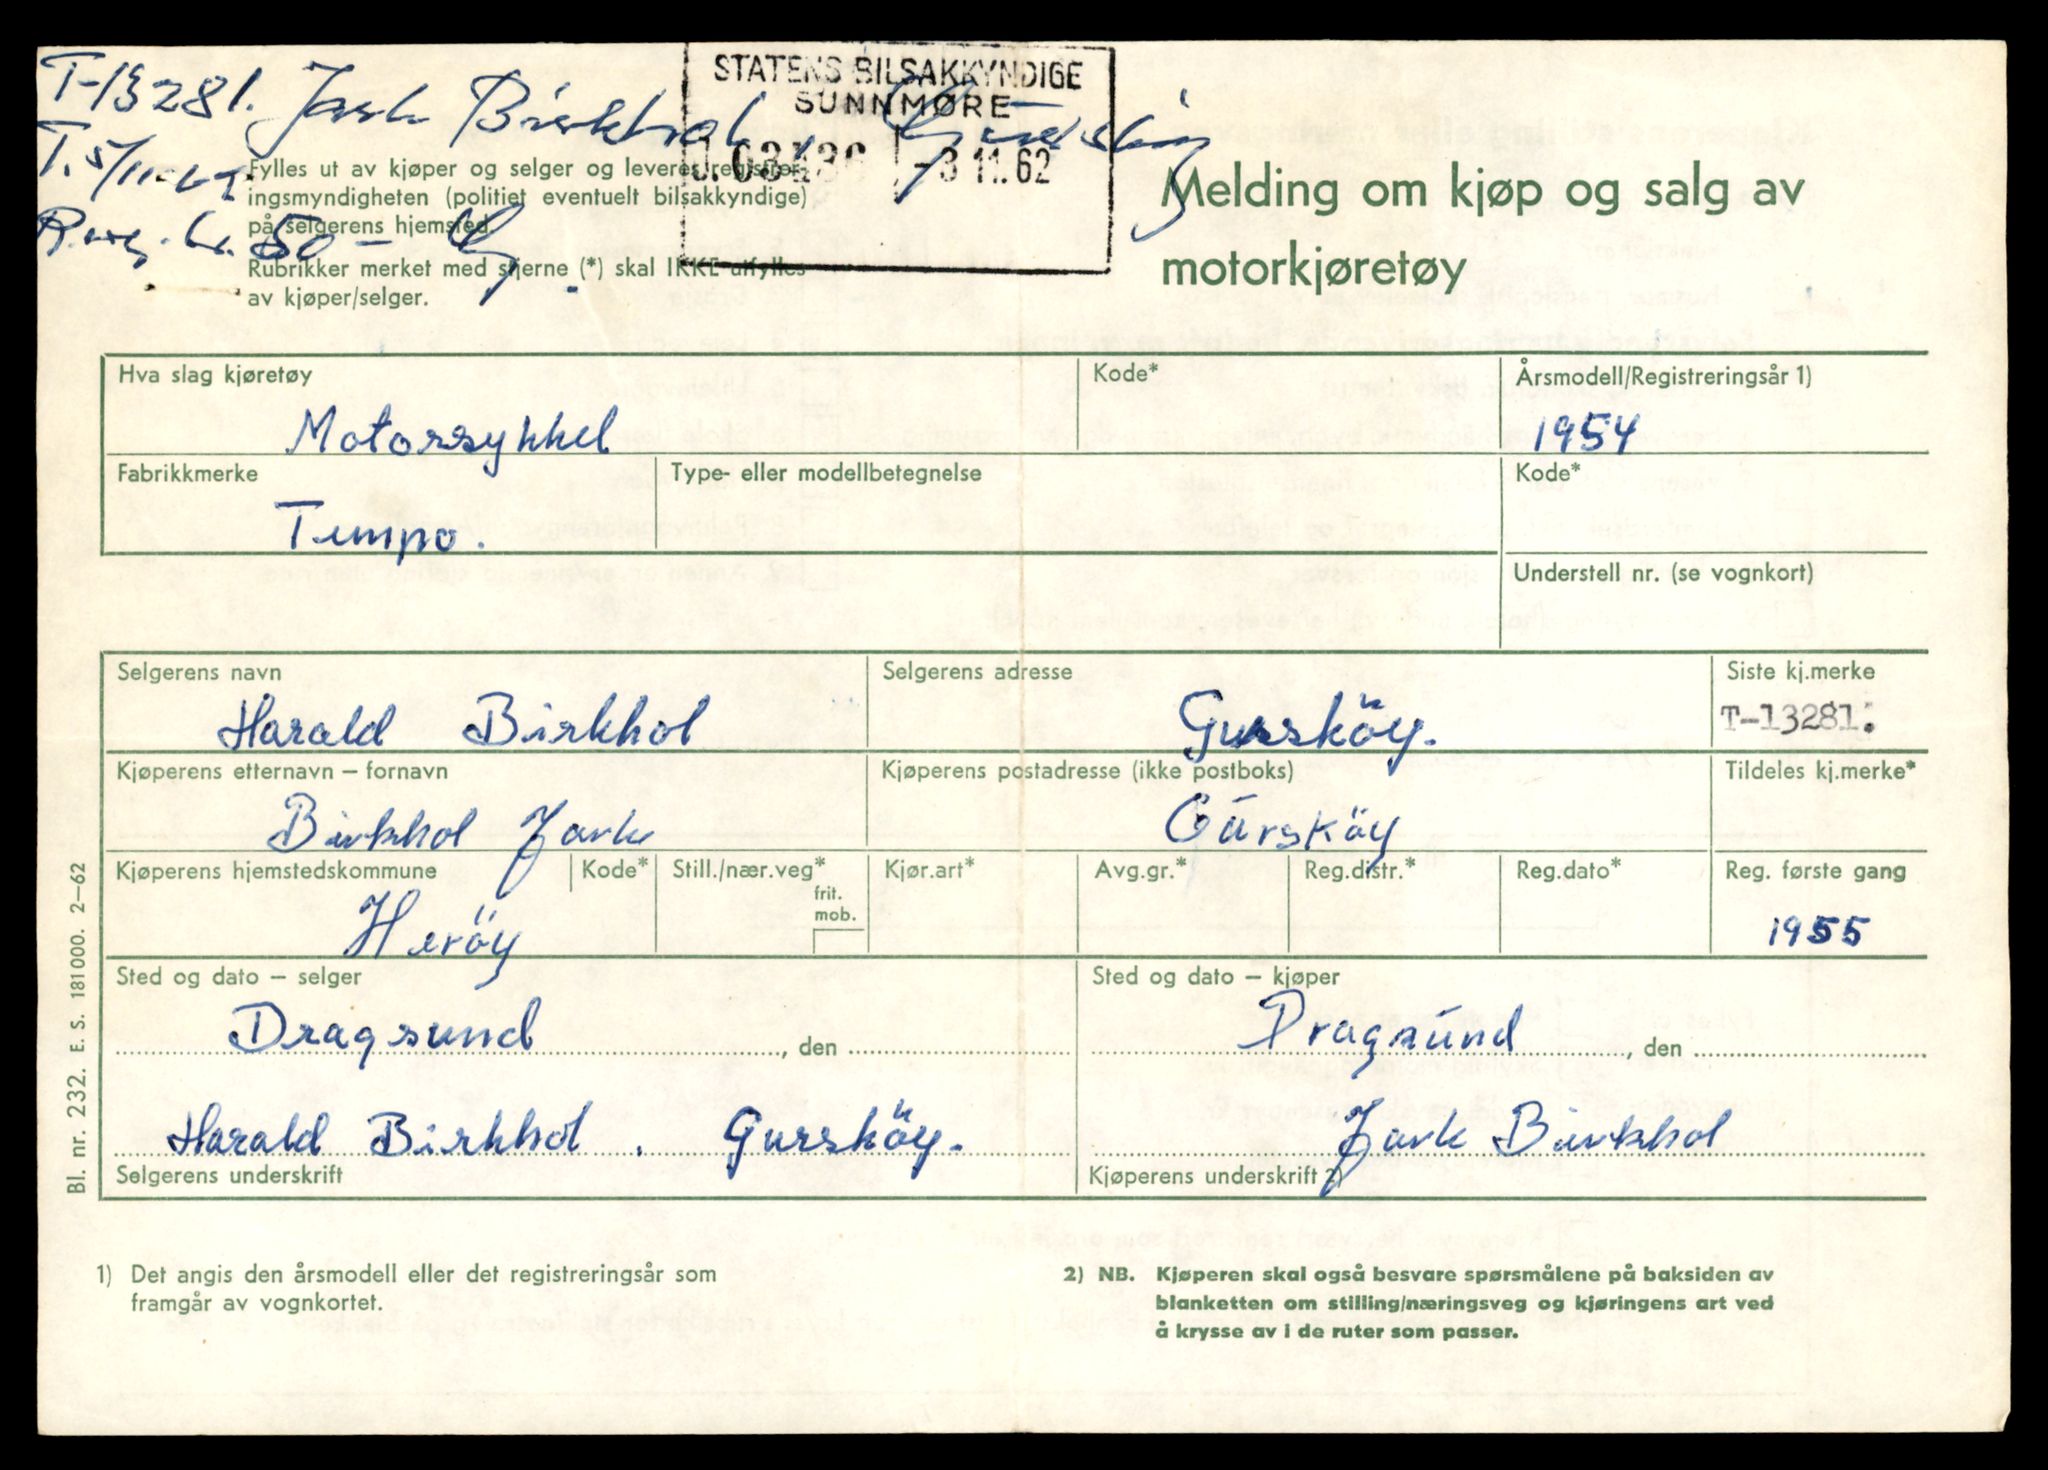 T-13281. Jark Birkhol
STATENS BILSAKKYNDIGE
SUNNMØRE
-3 11.62
T. 5/11-62
Fylles ut av kjøper og selger og leveres registrer-
ingsmyndigheten (politiet eventuelt bilsakkyndige)
på selgerens hjemsted.
50 -
Rubrikker merket med stjerne (*) skal IKKE utfylles
av kjøper/selger.
Melding om kjøp og salg av
motorkjøretøy
Hva slag kjøretøy Kode* Årsmodell/Registreringsår 1)
Motorsykkel 1954
Fabrikkmerke Type- eller modellbetegnelse Kode*
Tempo.
Understell nr. (se vognkort)
Selgerens navn Selgerens adresse Siste kj.merke
Harald Birkhol Gursköy. T-13281.
Kjøperens etternavn – fornavn Kjøperens postadresse (ikke postboks) Tildeles kj.merke*
Birkhol Jark Gursköy
Kjøperens hjemstedskommune Kode* Still./nær.veg* Kjør.art* Avg.gr.* Reg.distr.* Reg.dato* Reg. første gang
frit.
mob.
Heröy 1955
Sted og dato – selger Sted og dato – kjøper
Dragsund , den Dragsund , den
Harald Birkhol . Gursköy. Jark Birkhol
Selgerens underskrift Kjøperens underskrift 2)
Bl. nr. 232. E. S. 181000. 2–62
1) Det angis den årsmodell eller det registreringsår som
framgår av vognkortet.
2) NB. Kjøperen skal også besvare spørsmålene på baksiden av
blanketten om stilling/næringsveg og kjøringens art ved
å krysse av i de ruter som passer.